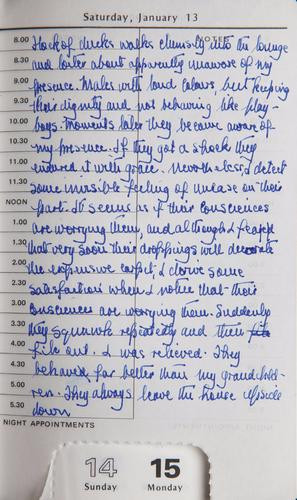 Saturday, January 13
NOTES
8.00 Flock of ducks walks clumsily into the lounge
8.30 and loiter about apparently unaware of my
9.00 presence. Males with loud colours, but keeping
9.30 their dignity and not behaving like play-
10.00 boys. Moments later they became aware of
10.30 my presence. If they got a shock they
11.00 endured it with grace. Nevertheless I detect
11.30 some invisible feeling of unease on their
NOON part. It seems as if their consciences
1.00 are worrying them, and although I fear
1.30 that very soon their droppings will decorate
2.00 the expensive carpet, I derive some
2.30 satisfaction when I notice that their
3.00 consciences are worrying them. Suddenly
3.30 they squawk repeatedly and then
4.00 file out. I was relieved. They
4.30 behaved far better than my grandchild-
5.00 ren. They always leave the house upside
5.30 down.
NIGHT APPOINTMENTS
14 15
Sunday Monday